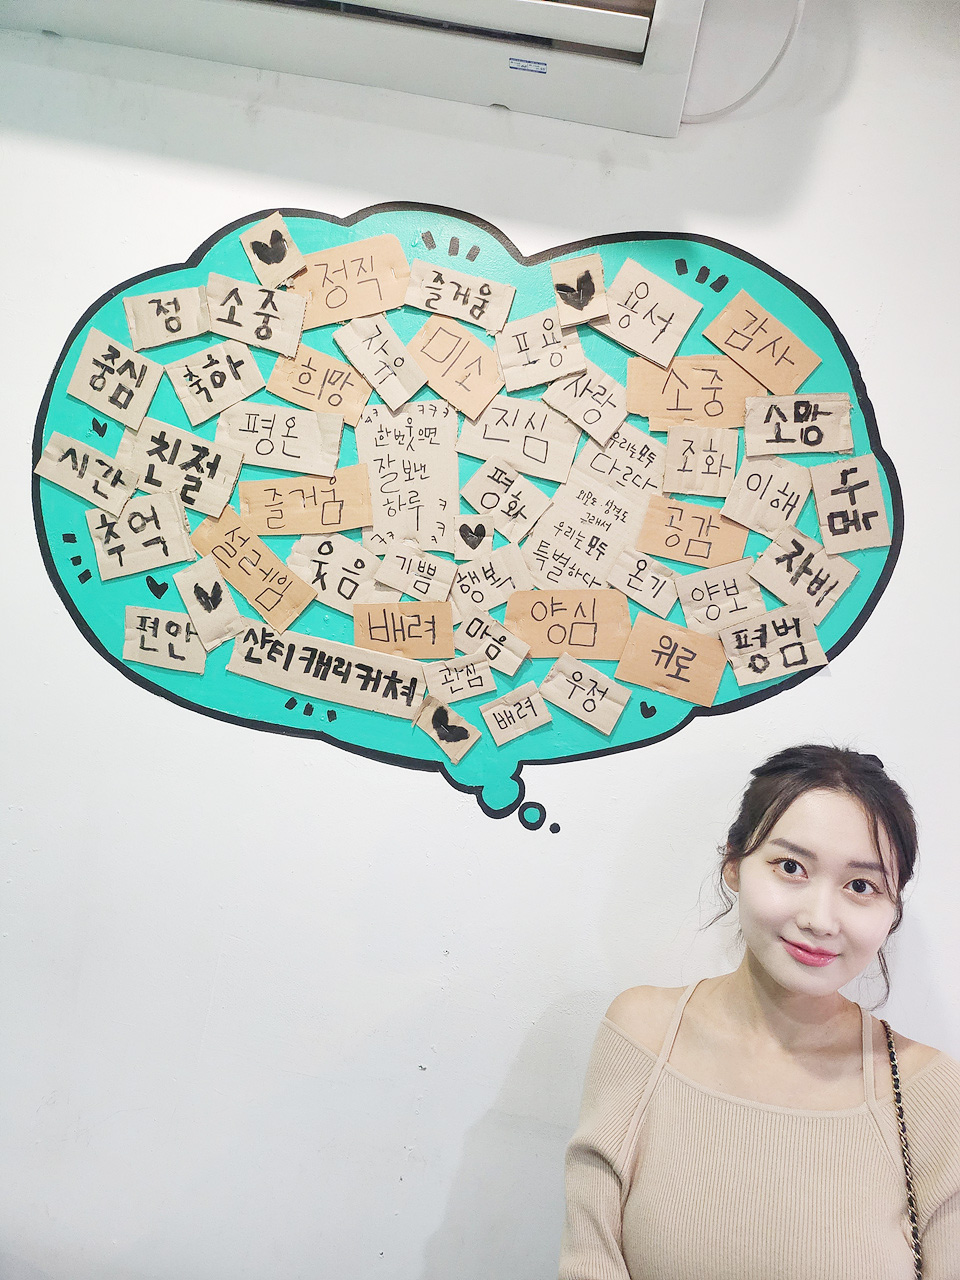 정직
즐거움
용서
정
소중
자유
미소
포용
감사
중심
축하
희망
사랑
소중
소망
평온
ㅋㅋㅋㅋ
한번웃으면
잘보낸
하루ㅋ
ㅋㅋ
진심
우리는모두
다르다
조화
이해
시간
친절
즐거움
평화
외모도 성격도
그래서
우리는모두
특별하다
공감
추억
설레임
웃음
기쁨
행복
온기
양보
자비
편안
배려
마음
양심
위로
평범
샨티캐리커쳐
관심
배려
우정